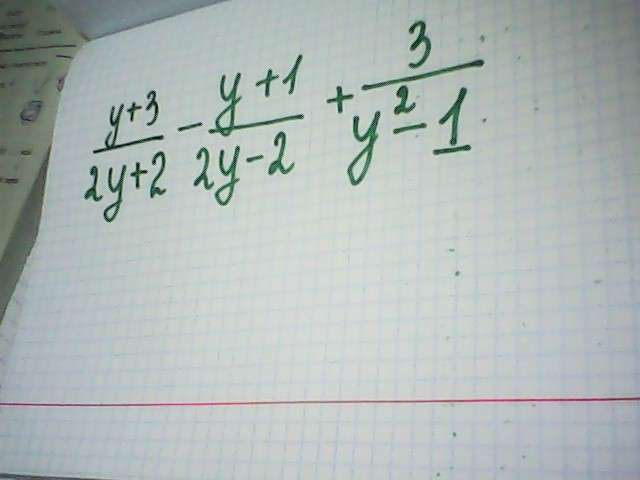 y+3/2y+2 - y+1/2y-2 + 3/y²-1